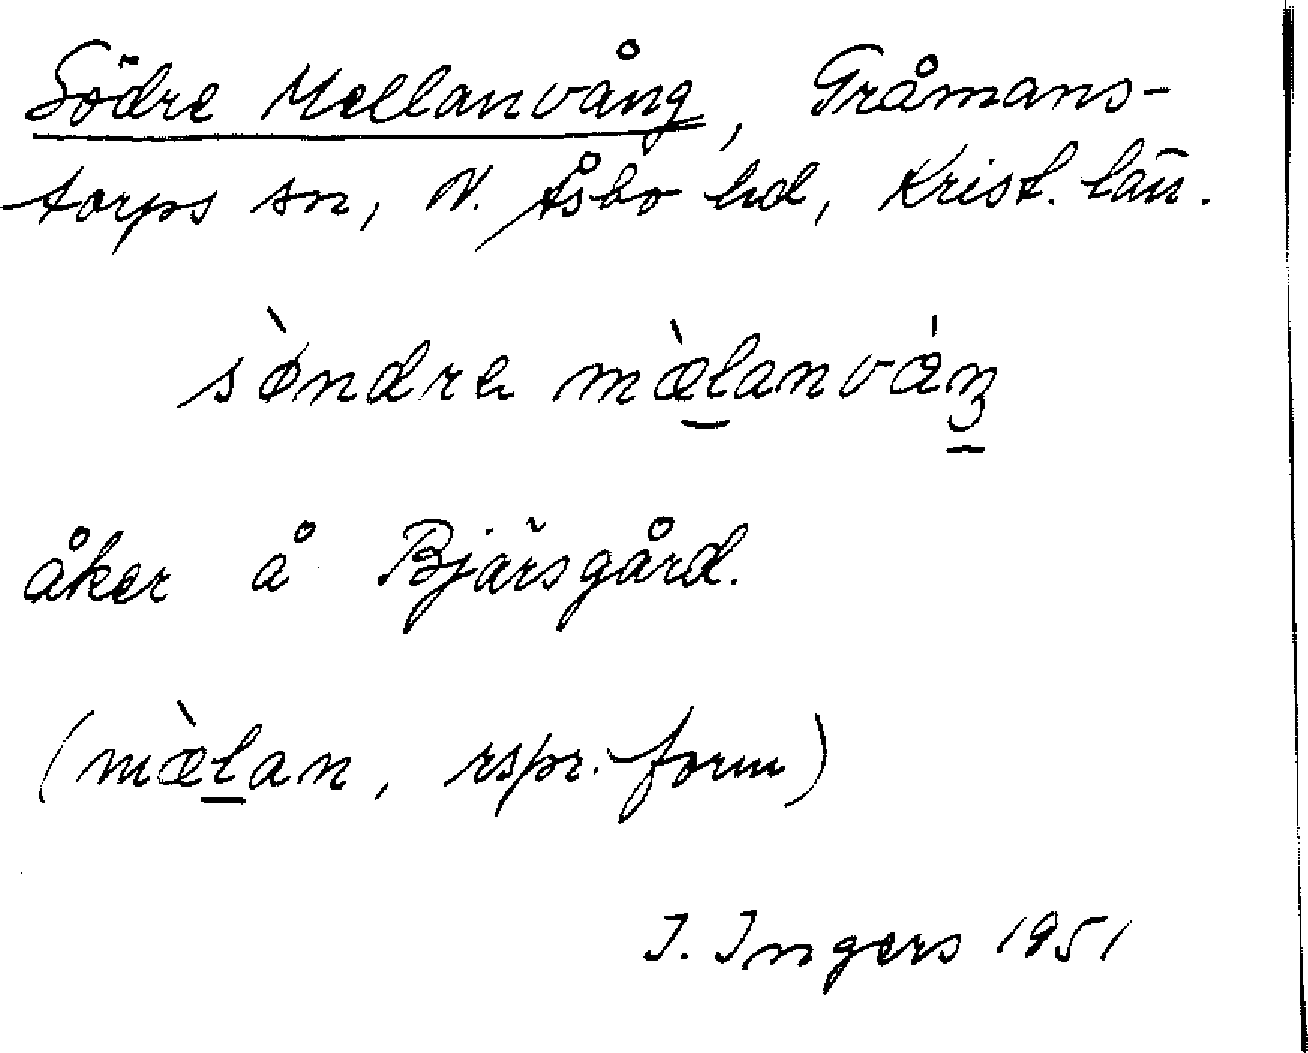 Södre Mellanvång, Gråmans-
torps sn, N. Åsbo hd, Krist. län.
sø̀ndrɐ mæ̀lanváŋ
åker å Bjärsgård.
(mæ̀lan, rspr.-form)
I. Ingers 1951